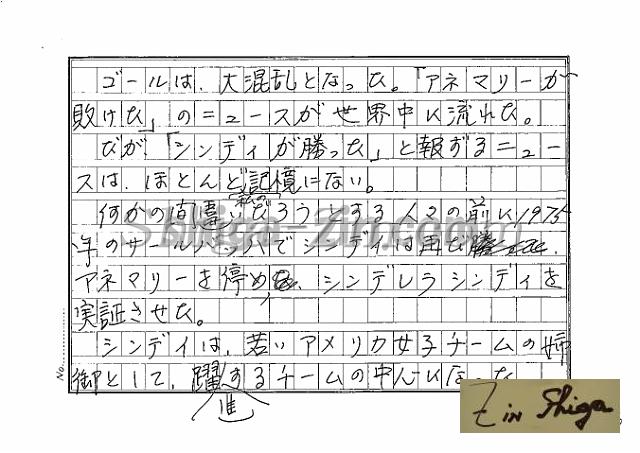 ゴールは、大混乱となった。「アネマリーが
敗けた」のニュースが世界中に流れた。
だが、「シンディが勝った」と報ずるニュー
スは、ほとんど記憶にない。
私の
何かの間違いだろうとする人々の前に1975
年のサールバッハでシンディは再び
アネマリーを停め、シンデレラシンディを
実証させた。
シンディは、若いアメリカ女子チームの姉
御として、躍する チームの中心になった
進
No.
Shiga-Zin.com
Z in Shiga